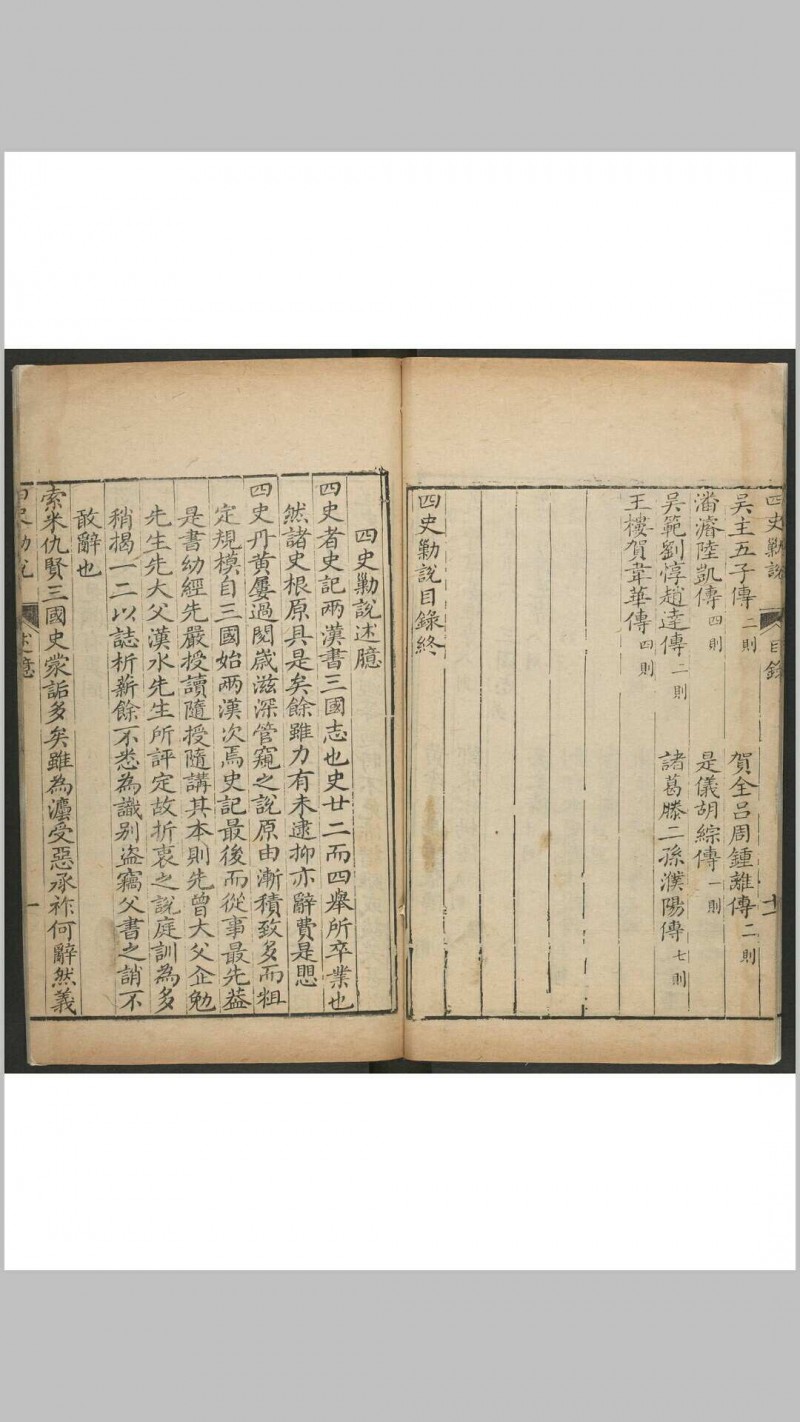 四史勦說 目錄 十一
吳主五子傳 二則 賀全呂周鍾離傳 二則
潘濬陸凱傳 四則 是儀胡綜傳 一則
吳範劉惇趙達傳 二則 諸葛滕二孫濮陽傳 七則
王樓賀韋華傳 四則
四史勦說目錄終
四史勦說述臆
四史者史記兩漢書三國志也史廿二而四舉所卒業也
然諸史根原具是矣餘雖力有未逮抑亦辭費是愳
四史丹黃屢過閱歲滋深管窺之說原由漸積致多而粗
定規模自三國始兩漢次焉史記最後而從事最先葢
是書幼經先嚴授讀隨授隨講其本則先曾大父企勉
先生先大父漢水先生所評定故折衷之說庭訓為多
稍揭一二以誌析薪餘不悉為識别盗竊父書之誚不
敢辭也
索米仇賢三國史蒙詬多矣雖為瀍受惡承祚何辭然義
四史勦說 述臆 一